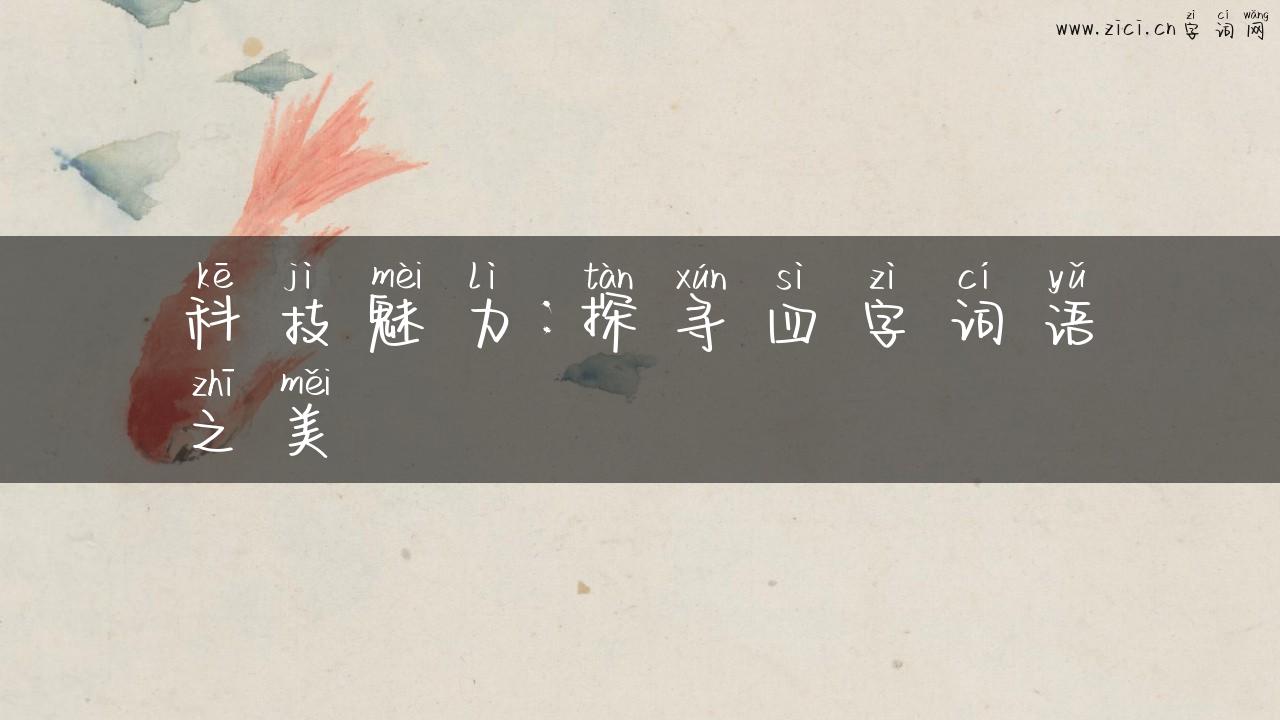 zì cí wǎng
www.zici.cn字词网
kē jì mèi lì tàn xún sì zì cí yǔ
科技魅力：探寻四字词语
zhī měi
之美